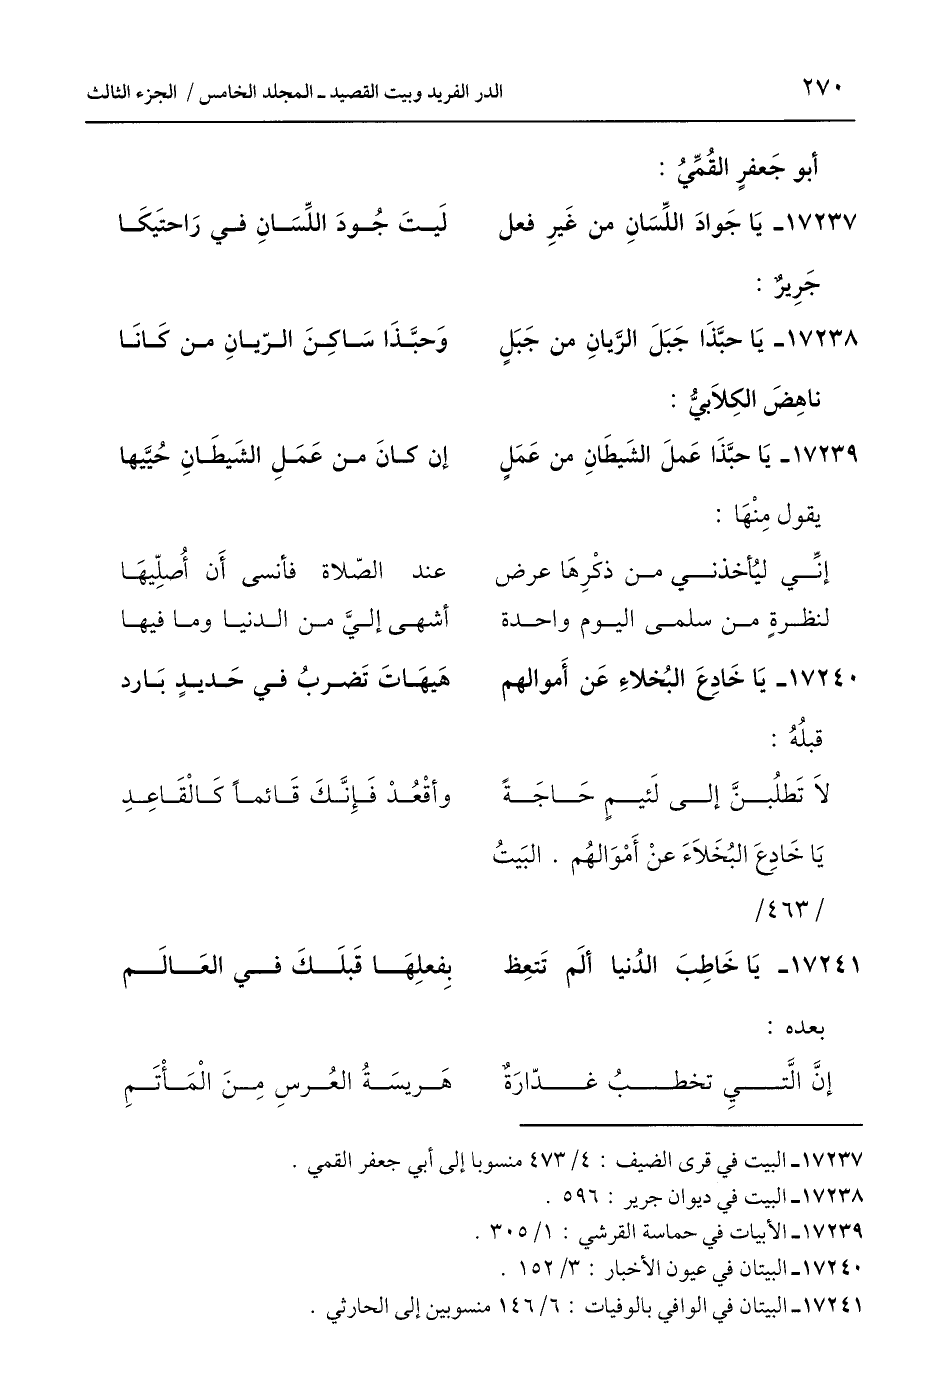 ٢٧٠ الدر الفريد وبيت القصيد ـ المجلد الخامس / الجزء الثالث
أبو جَعفرٍ القُمِّيُ :
١٧٢٣٧ـ يَا جَوادَ اللِّسَانِ من غَيرِ فعل لَيتَ جُودَ اللِّسَانِ في رَاحتَيكَا
جَرِيرٌ :
١٧٢٣٨ـ يَا حبَّذَا جَبَلَ الرَّيانِ من جَبَلٍ وَحبَّذَا سَاكِنَ الريانِ من كَانَا
ناهِضَ الكِلاَبيُّ :
١٧٢٣٩ـ يَا حبَّذَا عَملَ الشَيطَانِ من عَمَلٍ إن كانَ من عَمَلِ الشَيطَانِ حُبَّيها
يقول مِنْهَا :
إنِّي ليُأخذني من ذكْرِهَا عرض عند الصّلاة فأنسى أَن أُصلِّيهَا
لنظرةٍ من سلمى اليوم واحدة أشهى إليَّ من الدنيا وما فيها
١٧٢٤٠ـ يَا خَادِعَ البُخلاءِ عَن أَموالهم هَيهَاتَ تَضربُ في حَديدٍ بَارد
قبلُهُ :
لاَ تَطلُبنَّ إلى لَئيمٍ حَاجَةً وأقْعُدْ فَإِنَّكَ قَائماً كَالْقَاعِدِ
يَا خَادِعَ البُخَلاَءَ عنْ أَمْوَالهُم . البَيتُ
/ ٤٦٣/
١٧٢٤١ـ يَا خَاطِبَ الدُنيا أَلَم تَتعِظ بِفعلِهَا قَبلَكَ في العَالَم
بعده :
إنَّ الَّتي تخطبُ غدّارَةٌ هَريسَةُ العُرسِ مِنَ الْمَأْتَمِ
١٧٢٣٧ـ البيت في قرى الضيف : ٤/ ٤٧٣ منسوبا إلى أبي جعفر القمي .
١٧٢٣٨ـ البيت في ديوان جرير : ٥٩٦ .
١٧٢٣٩ـ الأبيات في حماسة القرشي : ١/ ٣٠٥ .
١٧٢٤٠ـ البيتان في عيون الأخبار : ٣/ ١٥٢ .
١٧٢٤١ـ البيتان في الوافي بالوفيات : ٦/ ١٤٦ منسوبين إلى الحارثي .